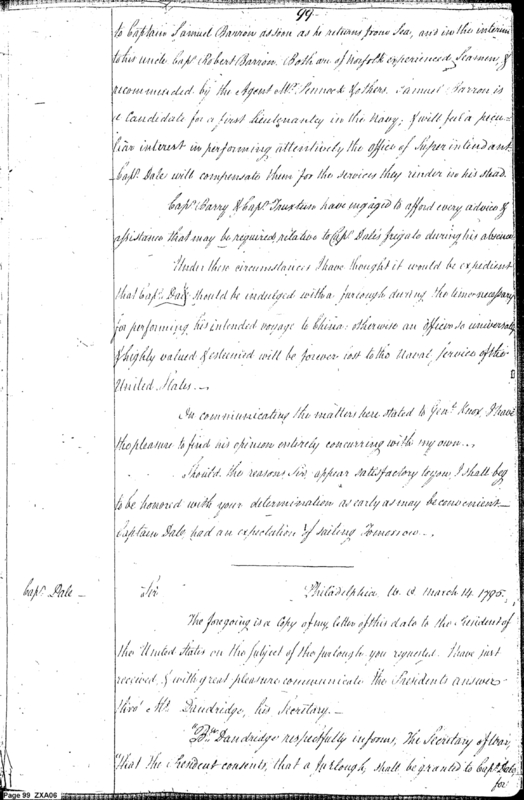 99
to Captain Samuel Barron as soon as he returns from Sea, and in the interim
to his uncle Capt Robert Barron. Both are of Norfolk experienced Seamen, &
recommended by the Agent Mr. Pennock & others. Samuel Barron is
a Candidate for a first Lieutenantcy in the Navy; & will feel a pecu-
liar interest in performing attentively the office of Superintendant
Capt. Dale will compensate them for the services they render in his stead.
Capt. Barry & Capt. Truxtun have engaged to afford every advice &
assistance that may be required, relative to Capt. Dale's frigate during his absence
Under these circumstances I have thought it would be expedient
that Capt. Dale should be indulged with a furlough during the time necessary
for performing his intended voyage to China: otherwise an officer so universally
& highly valued & esteemed will be forever lost to the Naval service of the
United States.
In communicating the matters here stated to Genl. Knox, I have
the pleasure to find his opinion entirely concurring with my own.
Should the reasons Sir, appear satisfactory to you, I shall beg
to be honored with your determination as early as may be convenient—
Captain Dale, had an expectation of sailing Tomorrow.
Capt. Dale —
Sir
Philadelphia W. D March 14. 1795.
The foregoing is a Copy of my letter of this date to the President of
the United States on the subject of the furlough you requested. I have just
received, & with great pleasure communicate the Presidents answer
thro' Mr. Dandridge, his Secretary. —
"Bw Dandridge respectfully informs, the Secretary of War,
"that the President consents, that a furlough, shall be granted to Capt. Dale,
for
Page 99 ZXA06